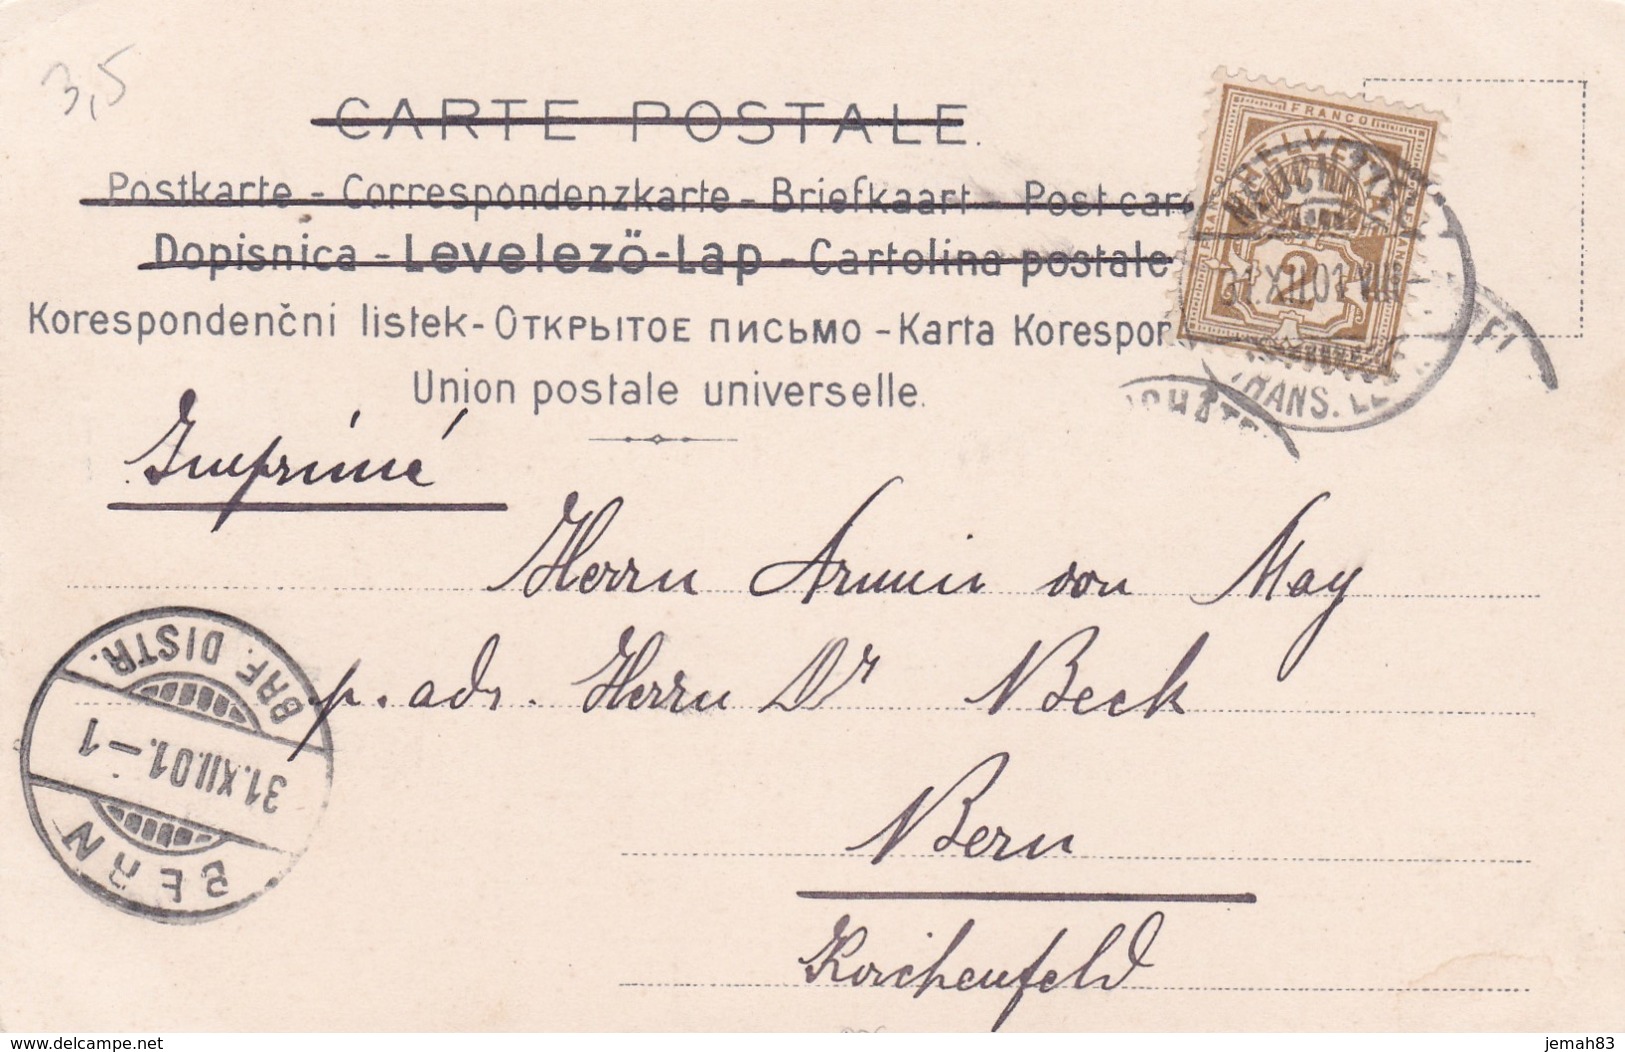 3,5
CARTE POSTALE.
Postkarte - Correspondenzkarte - Briefkaart - Post car
Dopisnica - Levelező-Lap - Cartolina postale
Korespondenční listek - Открытое письмо - Karta Korespon
Union postale universelle.
FRANCO
HELVETIA
2
NEUCH
31.XII.01.VIII-
TRANS. LE
Imprimé
Herrn Armin von May
p. adr. Herrn Dr Beck
Bern
Kirchenfeld
BRF. DISTR.
31.XII.01.-1
BERN
www.delcampe.net
jemah83